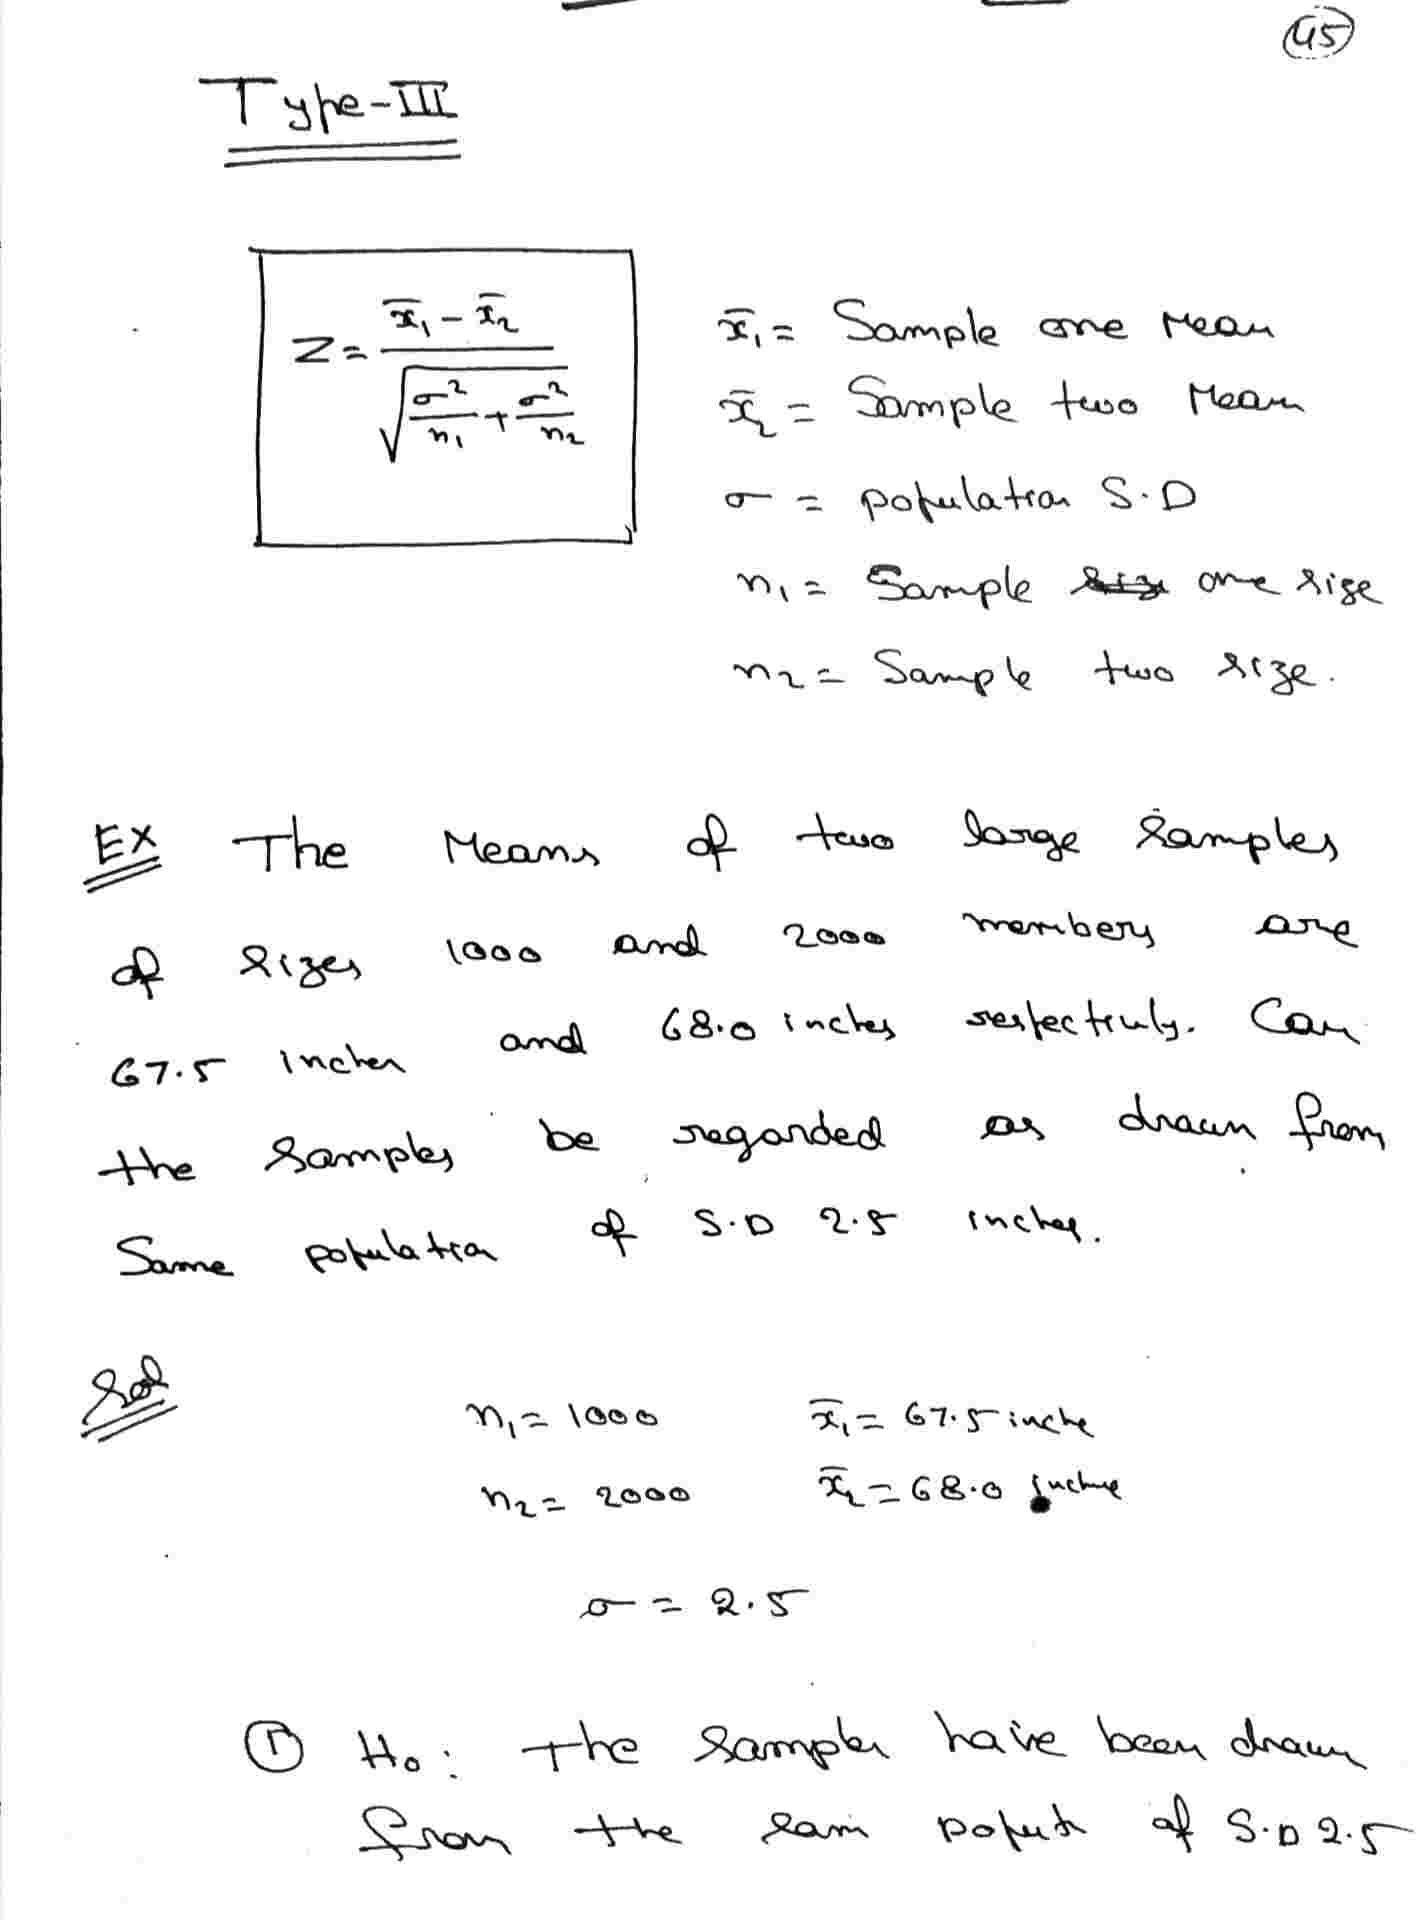 45
Type-III
Z = (x̄₁ - x̄₂) / √(σ²/n₁ + σ²/n₂)
x̄₁ = Sample one Mean
x̄₂ = Sample two Mean
σ = population S.D
n₁ = Sample one size
n₂ = Sample two size.
EX The Means of two large samples
of sizes 1000 and 2000 members are
67.5 inches and 68.0 inches respectively. Can
the samples be regarded as drawn from
Same population of S.D 2.5 inches.
Sol
n₁ = 1000 x̄₁ = 67.5 inche
n₂ = 2000 x̄₂ = 68.0 inche
σ = 2.5
① H₀: The samples have been drawn
from the same of S.D 2.5